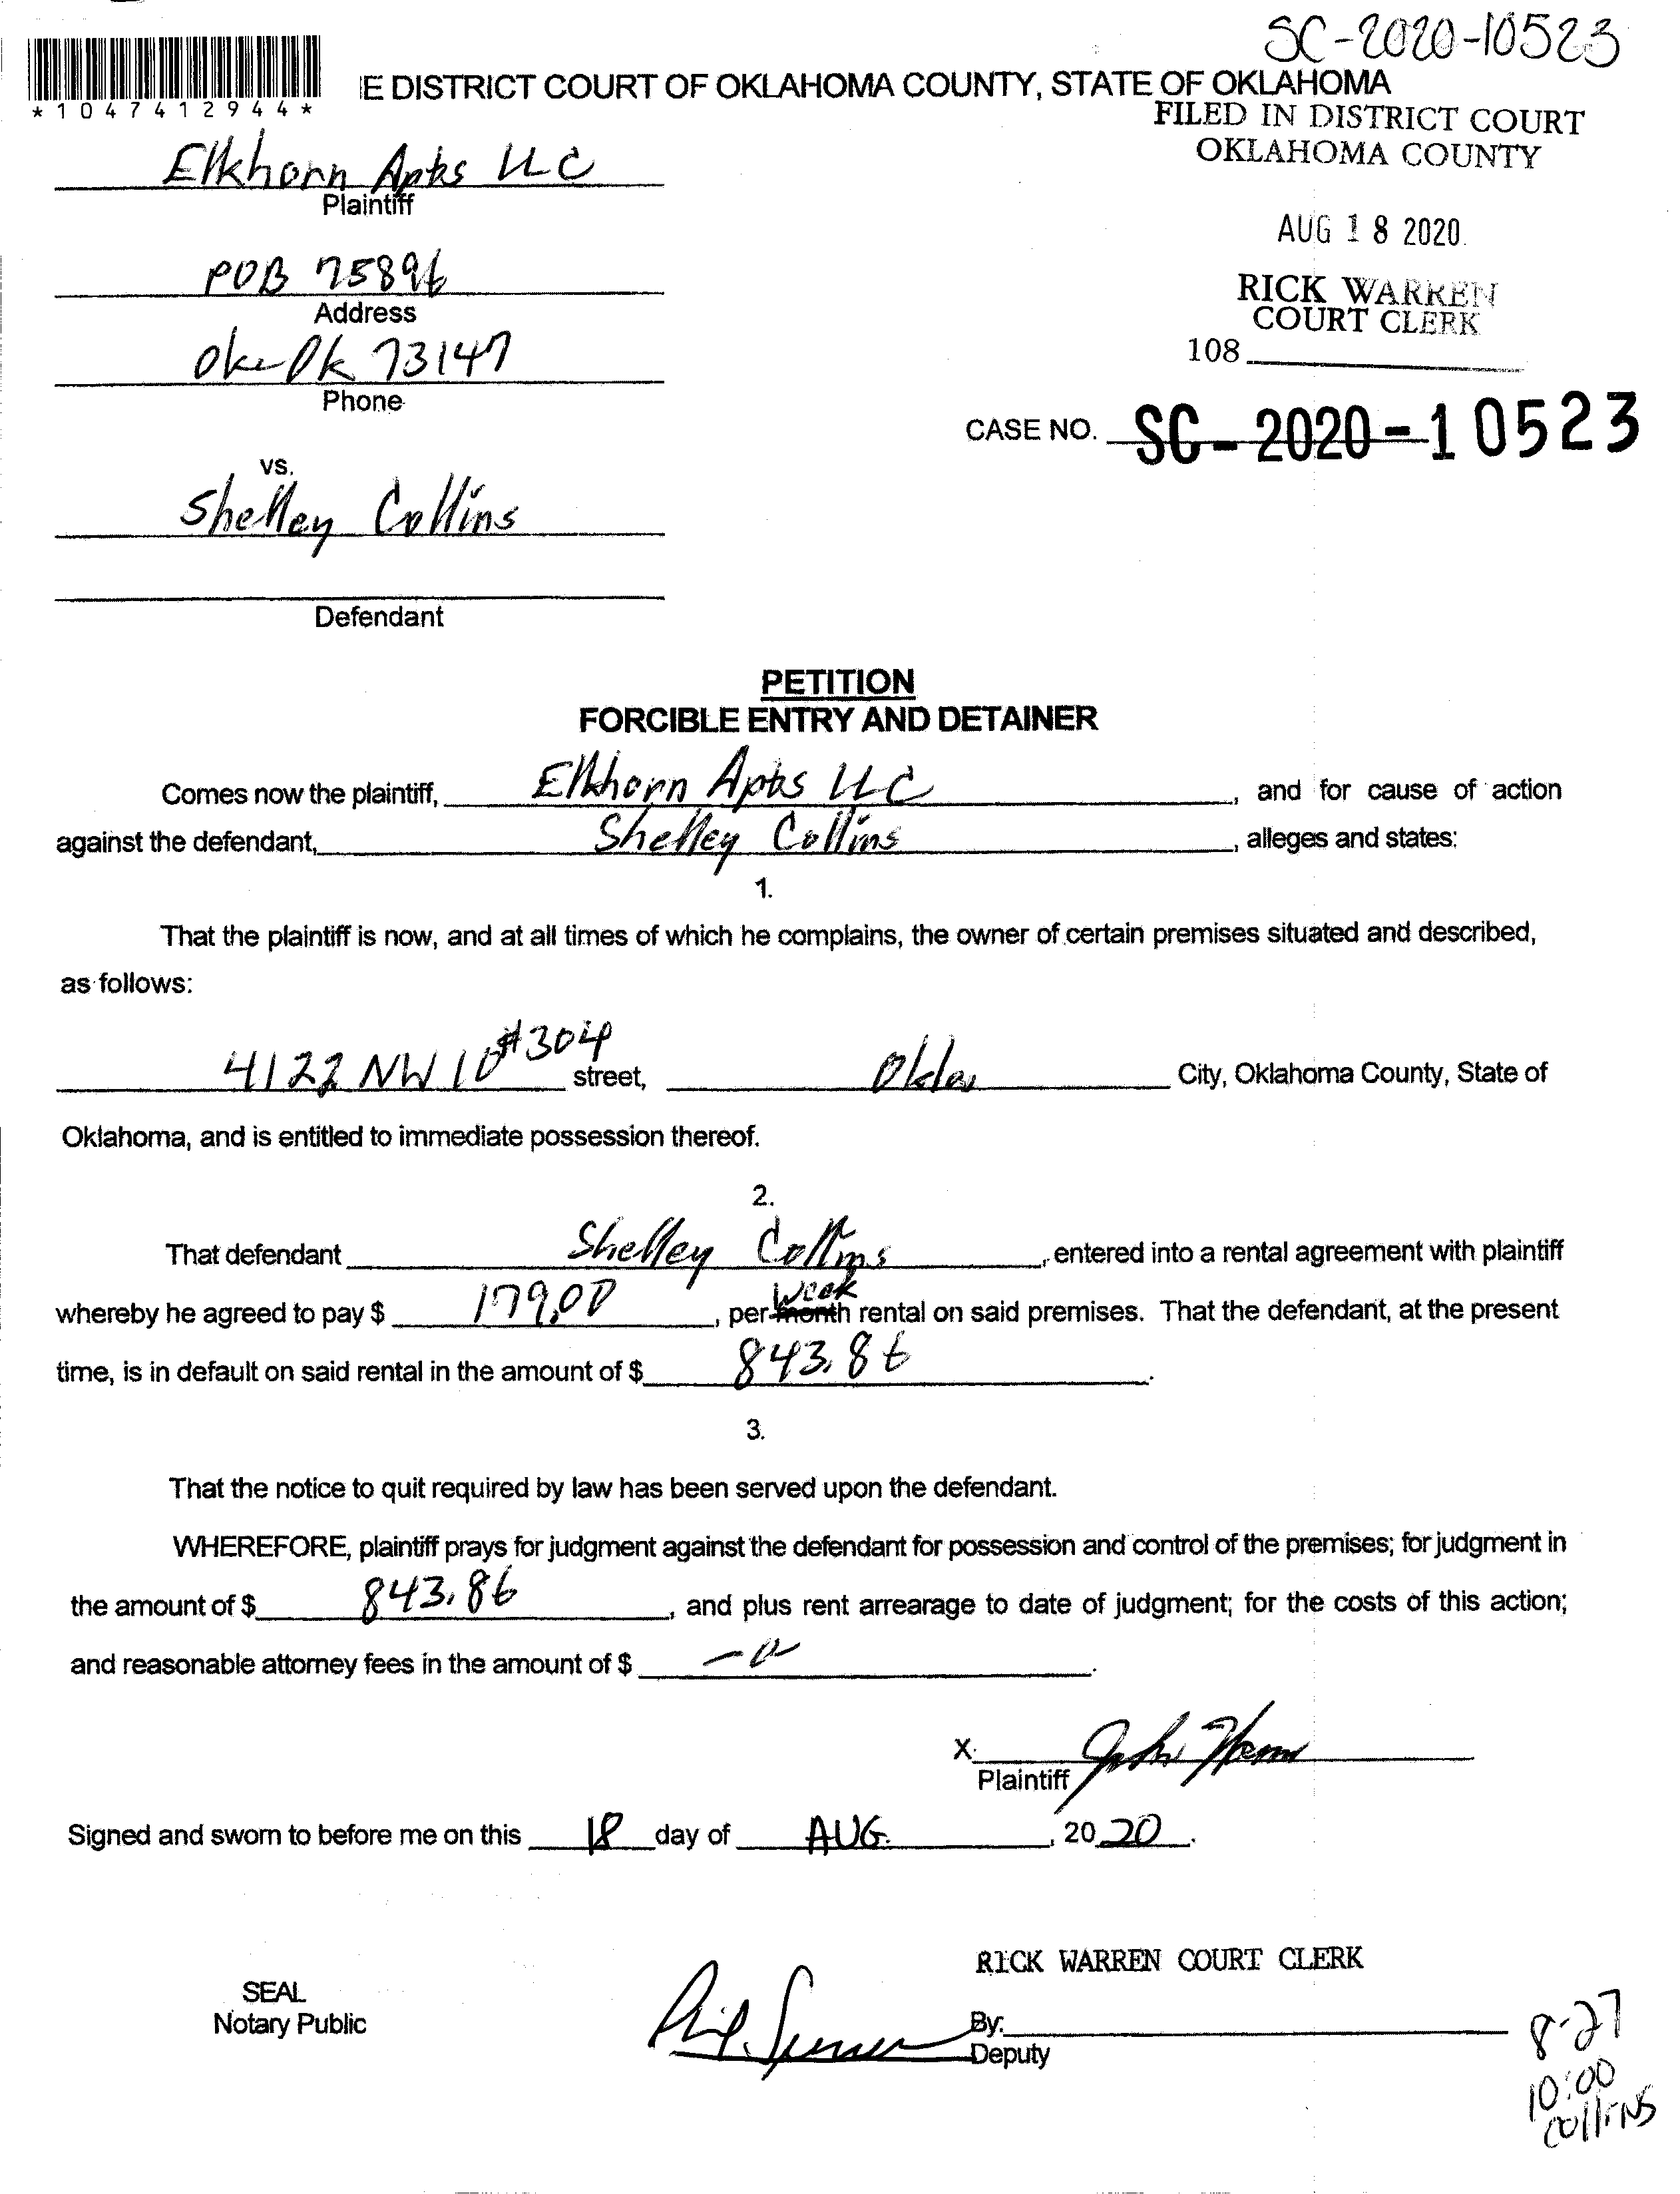 SC-2020-10523
*1047412944*
E DISTRICT COURT OF OKLAHOMA COUNTY, STATE OF OKLAHOMA
FILED IN DISTRICT COURT
OKLAHOMA COUNTY
Elkhorn Apts LLC
Plaintiff
AUG 18 2020
POB 75896
Address
RICK WARREN
COURT CLERK
Ok 73147
Phone
108
CASE NO. SC-2020-10523
vs.
Shelley Collins
Defendant
PETITION
FORCIBLE ENTRY AND DETAINER
Comes now the plaintiff, Elkhorn Apts LLC, and for cause of action
against the defendant, Shelley Collins, alleges and states:
1.
That the plaintiff is now, and at all times of which he complains, the owner of certain premises situated and described,
as follows:
4122 NW 10 #304 street, Okla City, Oklahoma County, State of
Oklahoma, and is entitled to immediate possession thereof.
2.
That defendant Shelley Collins, entered into a rental agreement with plaintiff
whereby he agreed to pay $ 179.00, per month week rental on said premises. That the defendant, at the present
time, is in default on said rental in the amount of $ 843.86.
3.
That the notice to quit required by law has been served upon the defendant.
WHEREFORE, plaintiff prays for judgment against the defendant for possession and control of the premises; for judgment in
the amount of $ 843.86, and plus rent arrearage to date of judgment; for the costs of this action;
and reasonable attorney fees in the amount of $ -0-.
X
Plaintiff
Signed and sworn to before me on this 18 day of AUG., 2020.
RICK WARREN COURT CLERK
SEAL
Notary Public
By:
Deputy
8-27
10:00
Collins